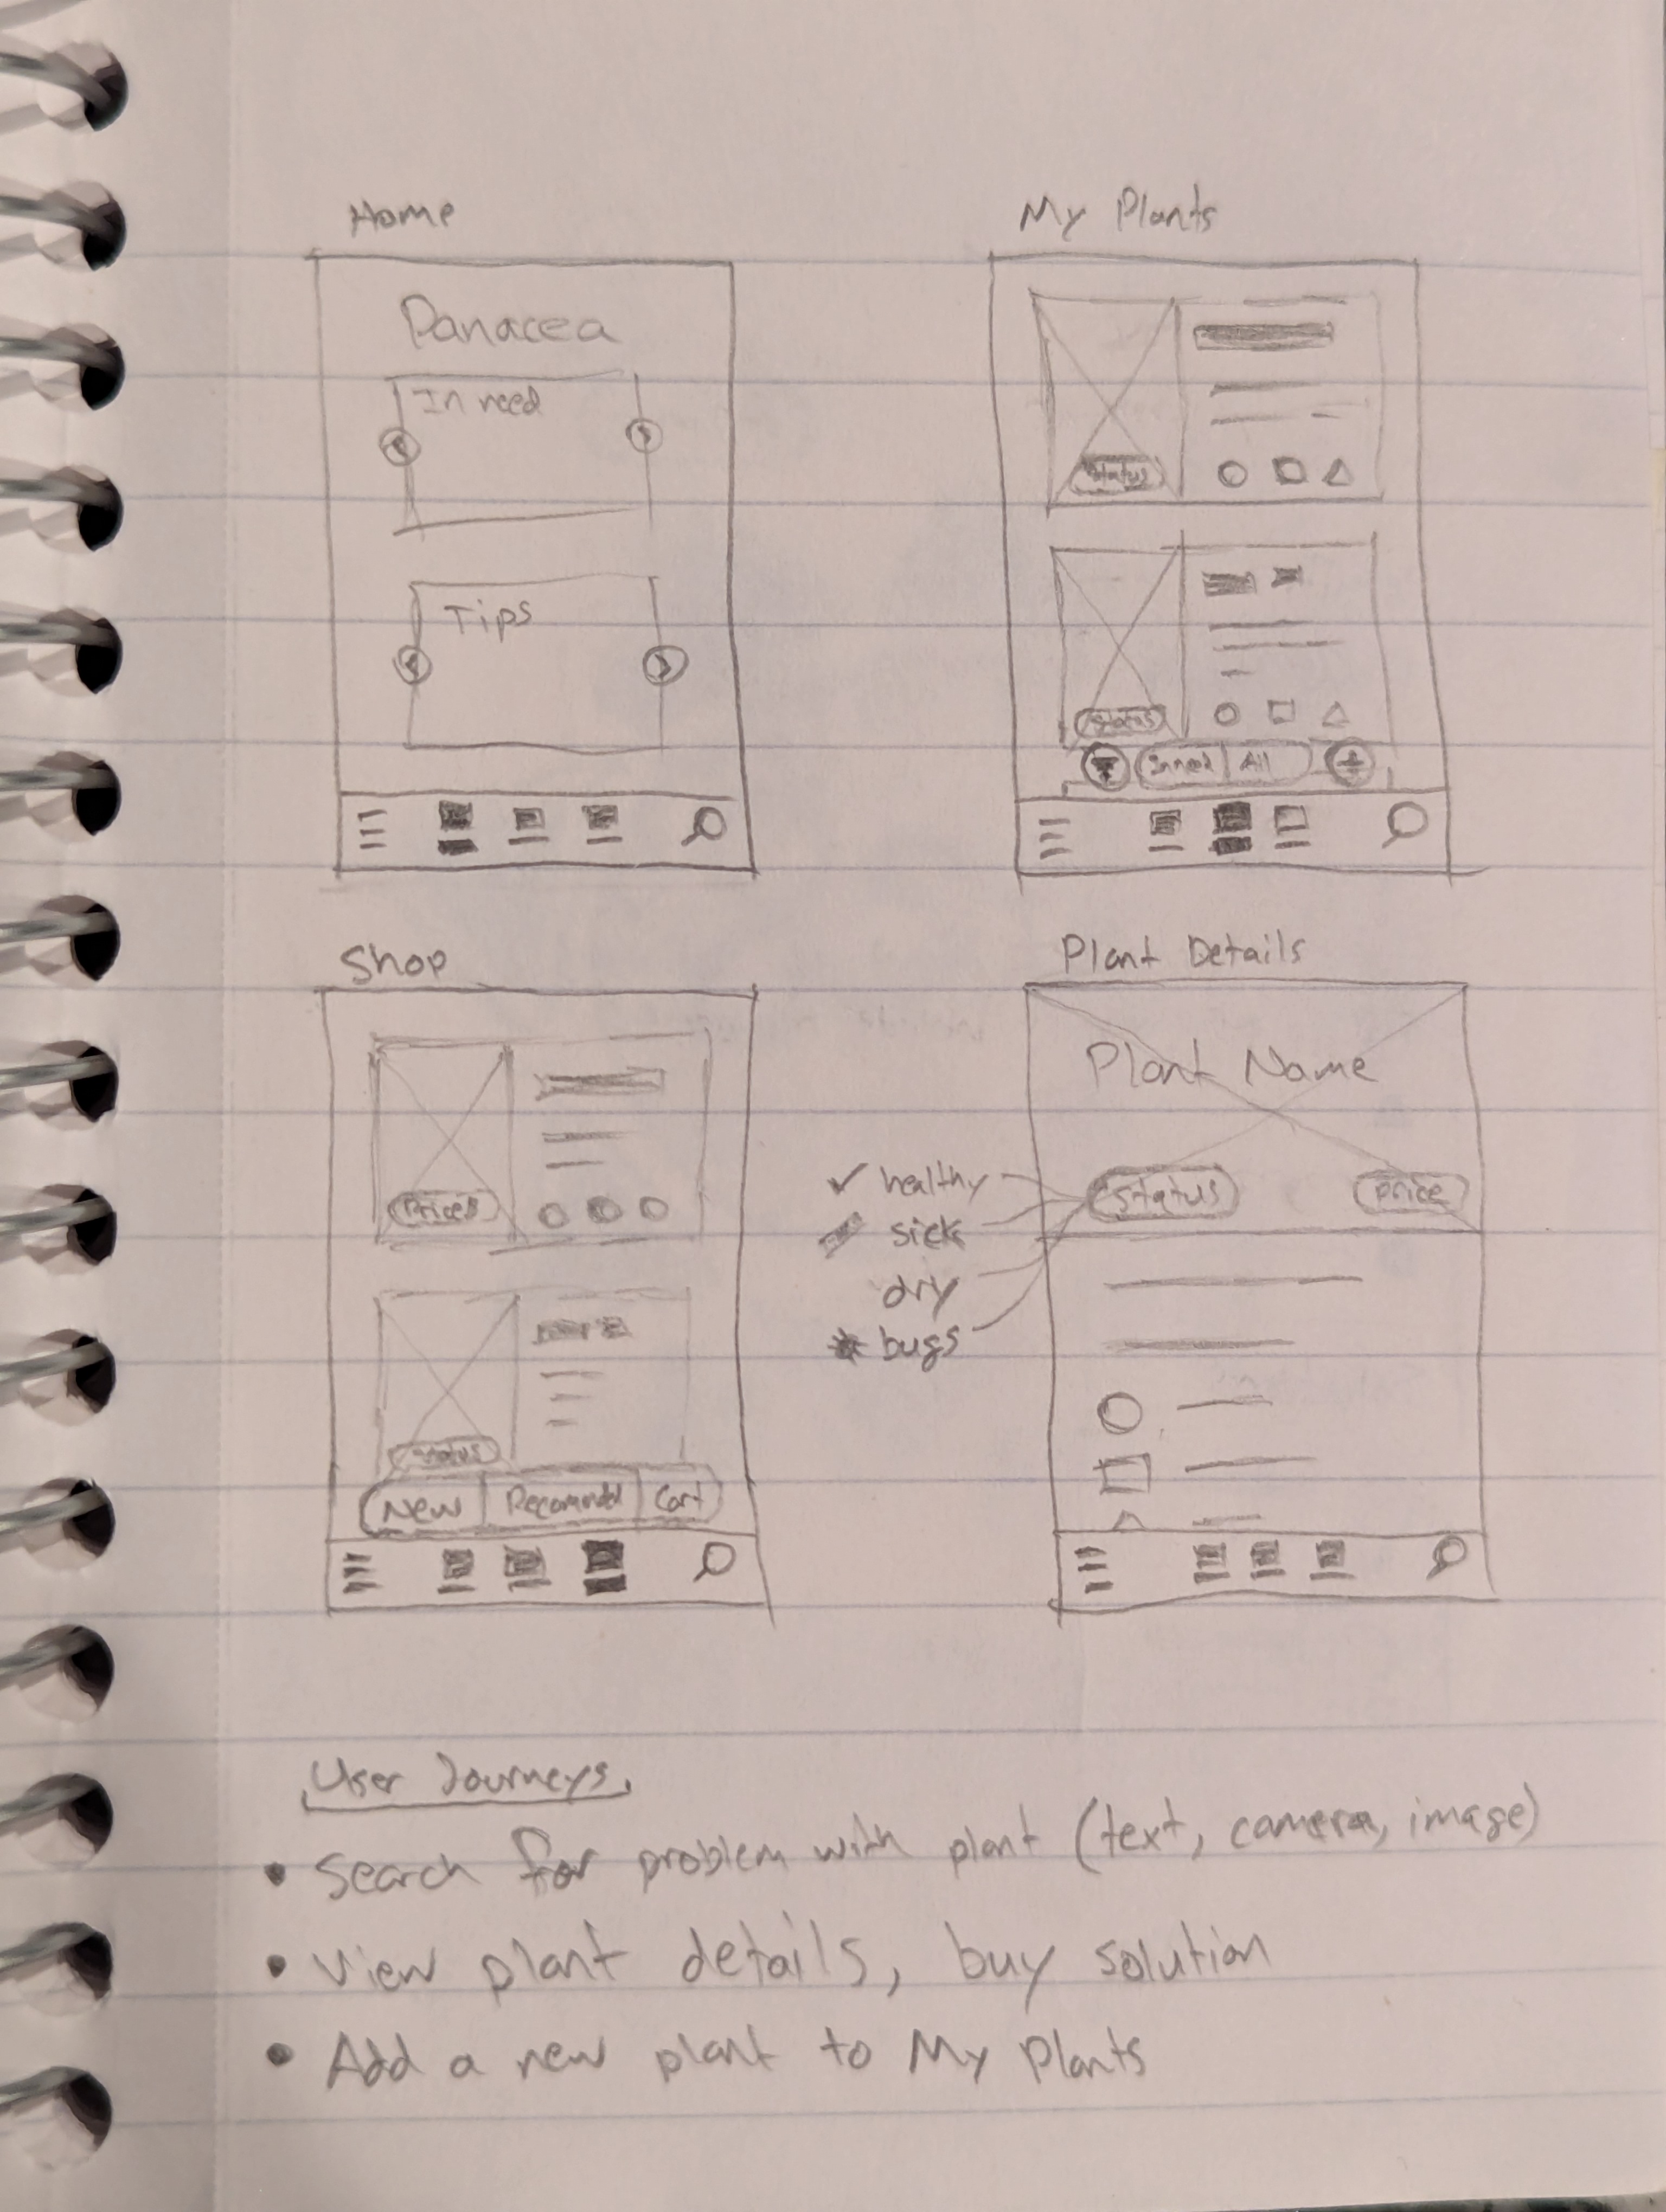 Home
Panacea
In need
Tips
My Plants
Status
Status
In need All
Shop
Prices
Status
New Recommded Cart
Plant Details
Plant Name
Status Price
healthy
sick
dry
bugs
User Journeys
• Search for problem with plant (text, camera, image)
• View plant details, buy solution
• Add a new plant to My Plants